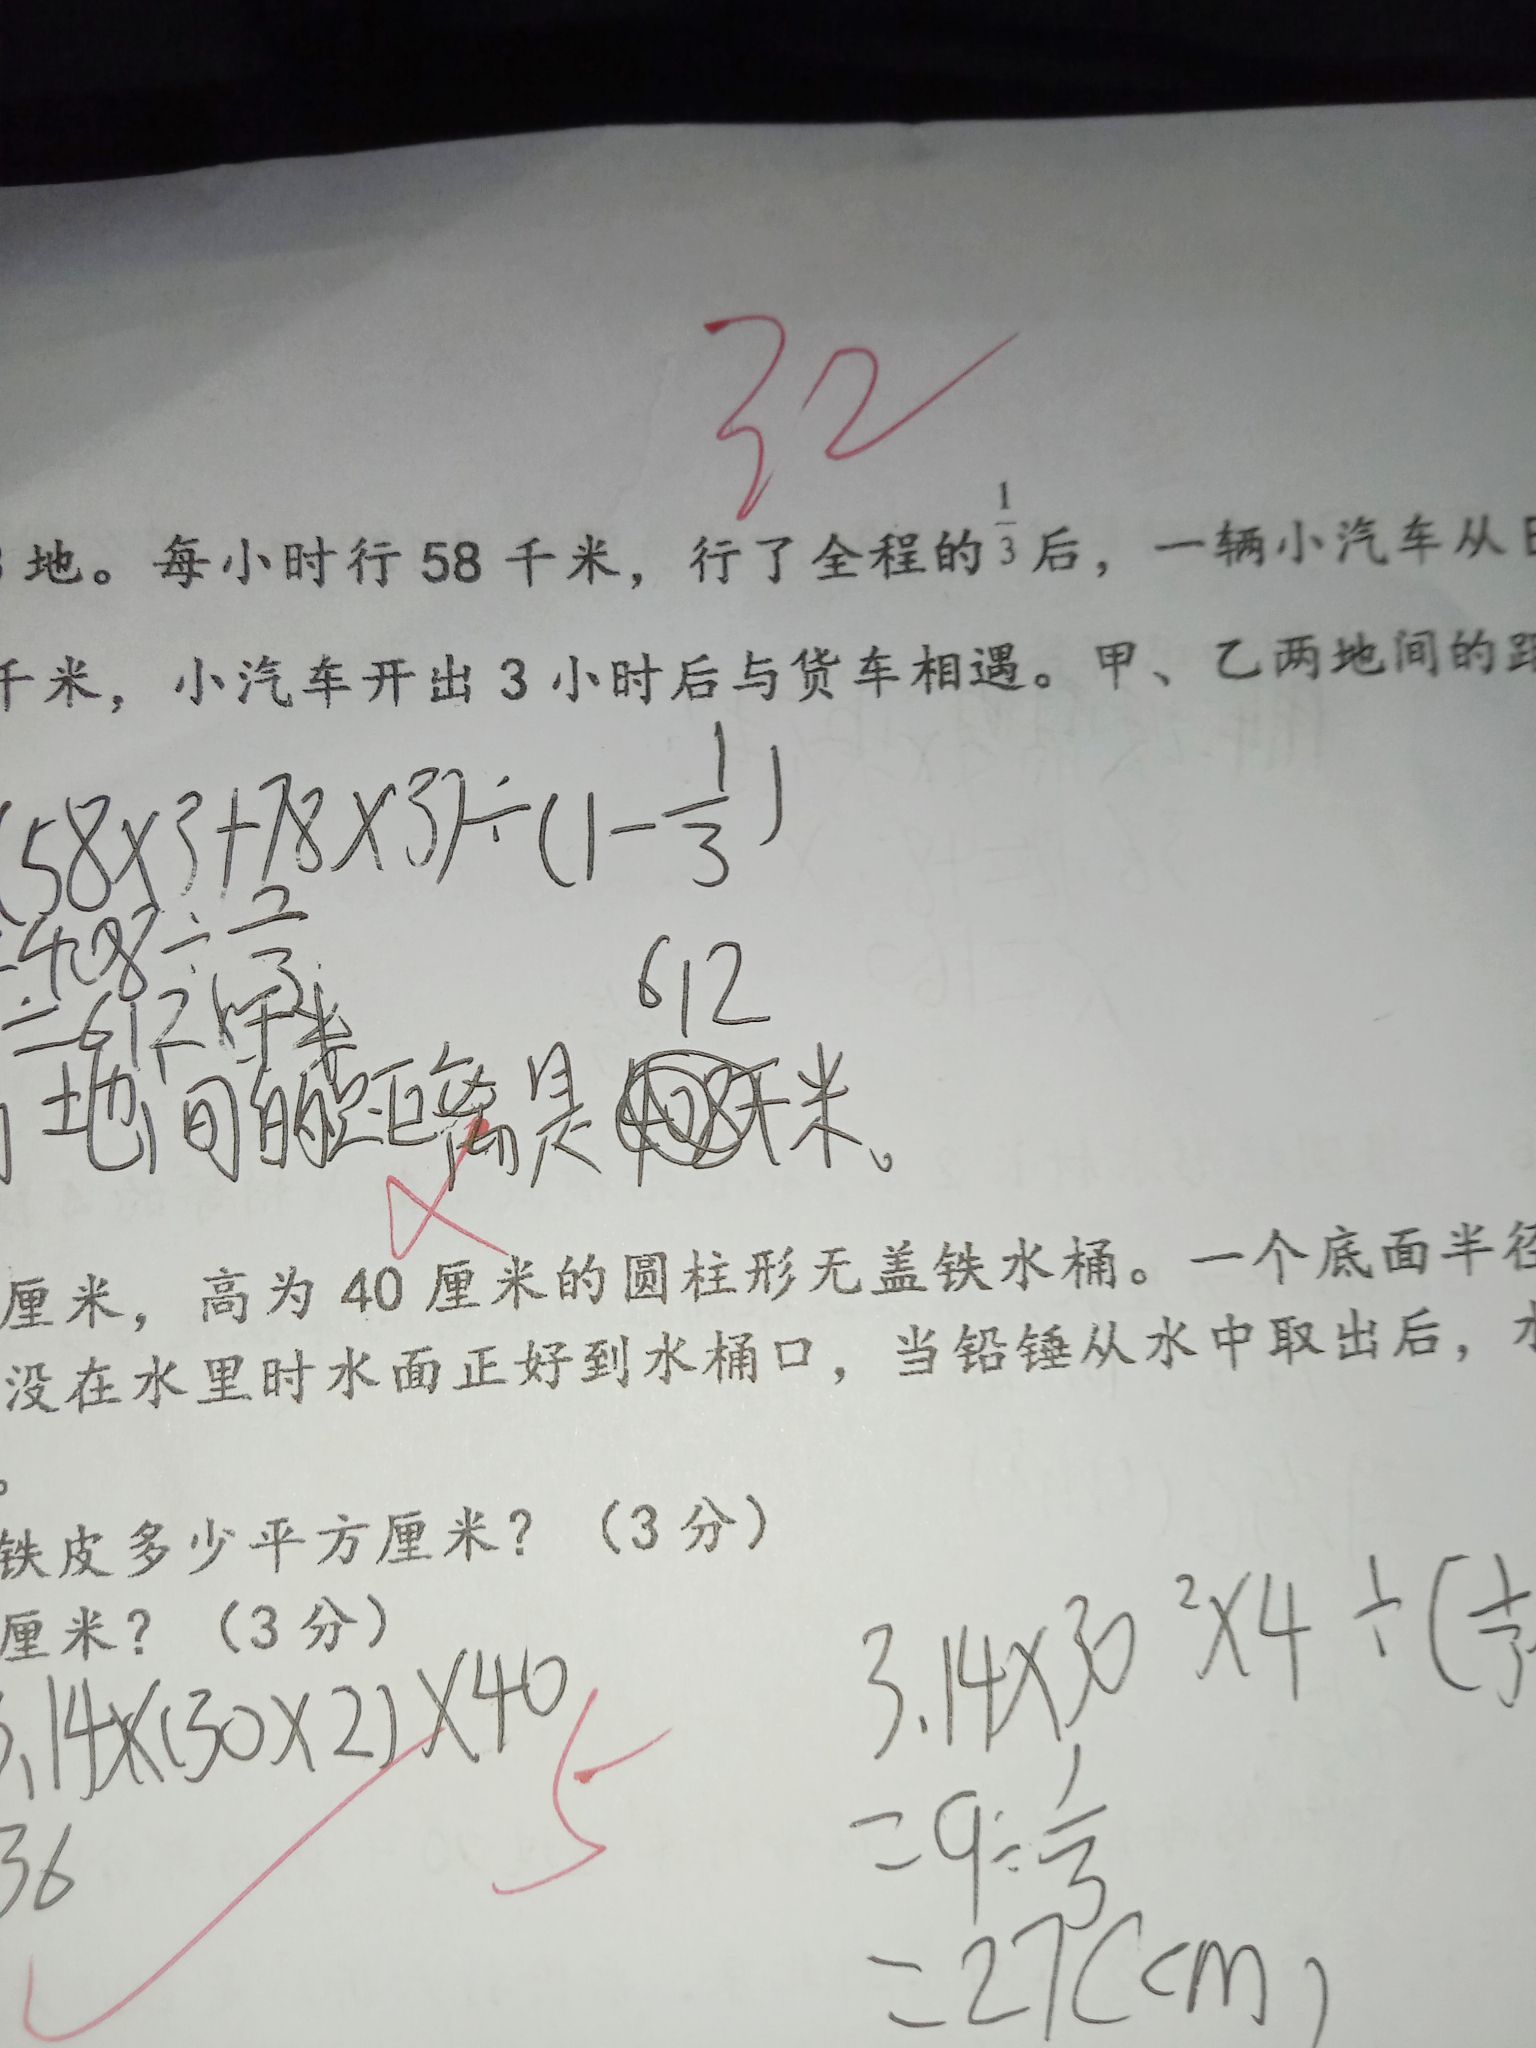 32
地。每小时行 58 千米，行了全程的 1/3 后，一辆小汽车从
千米，小汽车开出 3 小时后与货车相遇。甲、乙两地间的距
(58×3+78×3)÷(1-1/3)
=408÷2/3
=612 千米
612
地间的距离是千米。
厘米，高为 40 厘米的圆柱形无盖铁水桶。一个底面半径
没在水里时水面正好到水桶口，当铅锤从水中取出后，水
。
铁皮多少平方厘米？（3 分）
厘米？（3 分）
3.14×(30×2)×40
5
36
3.14×30²×4÷(1/3
=9÷1/3
=27(cm)